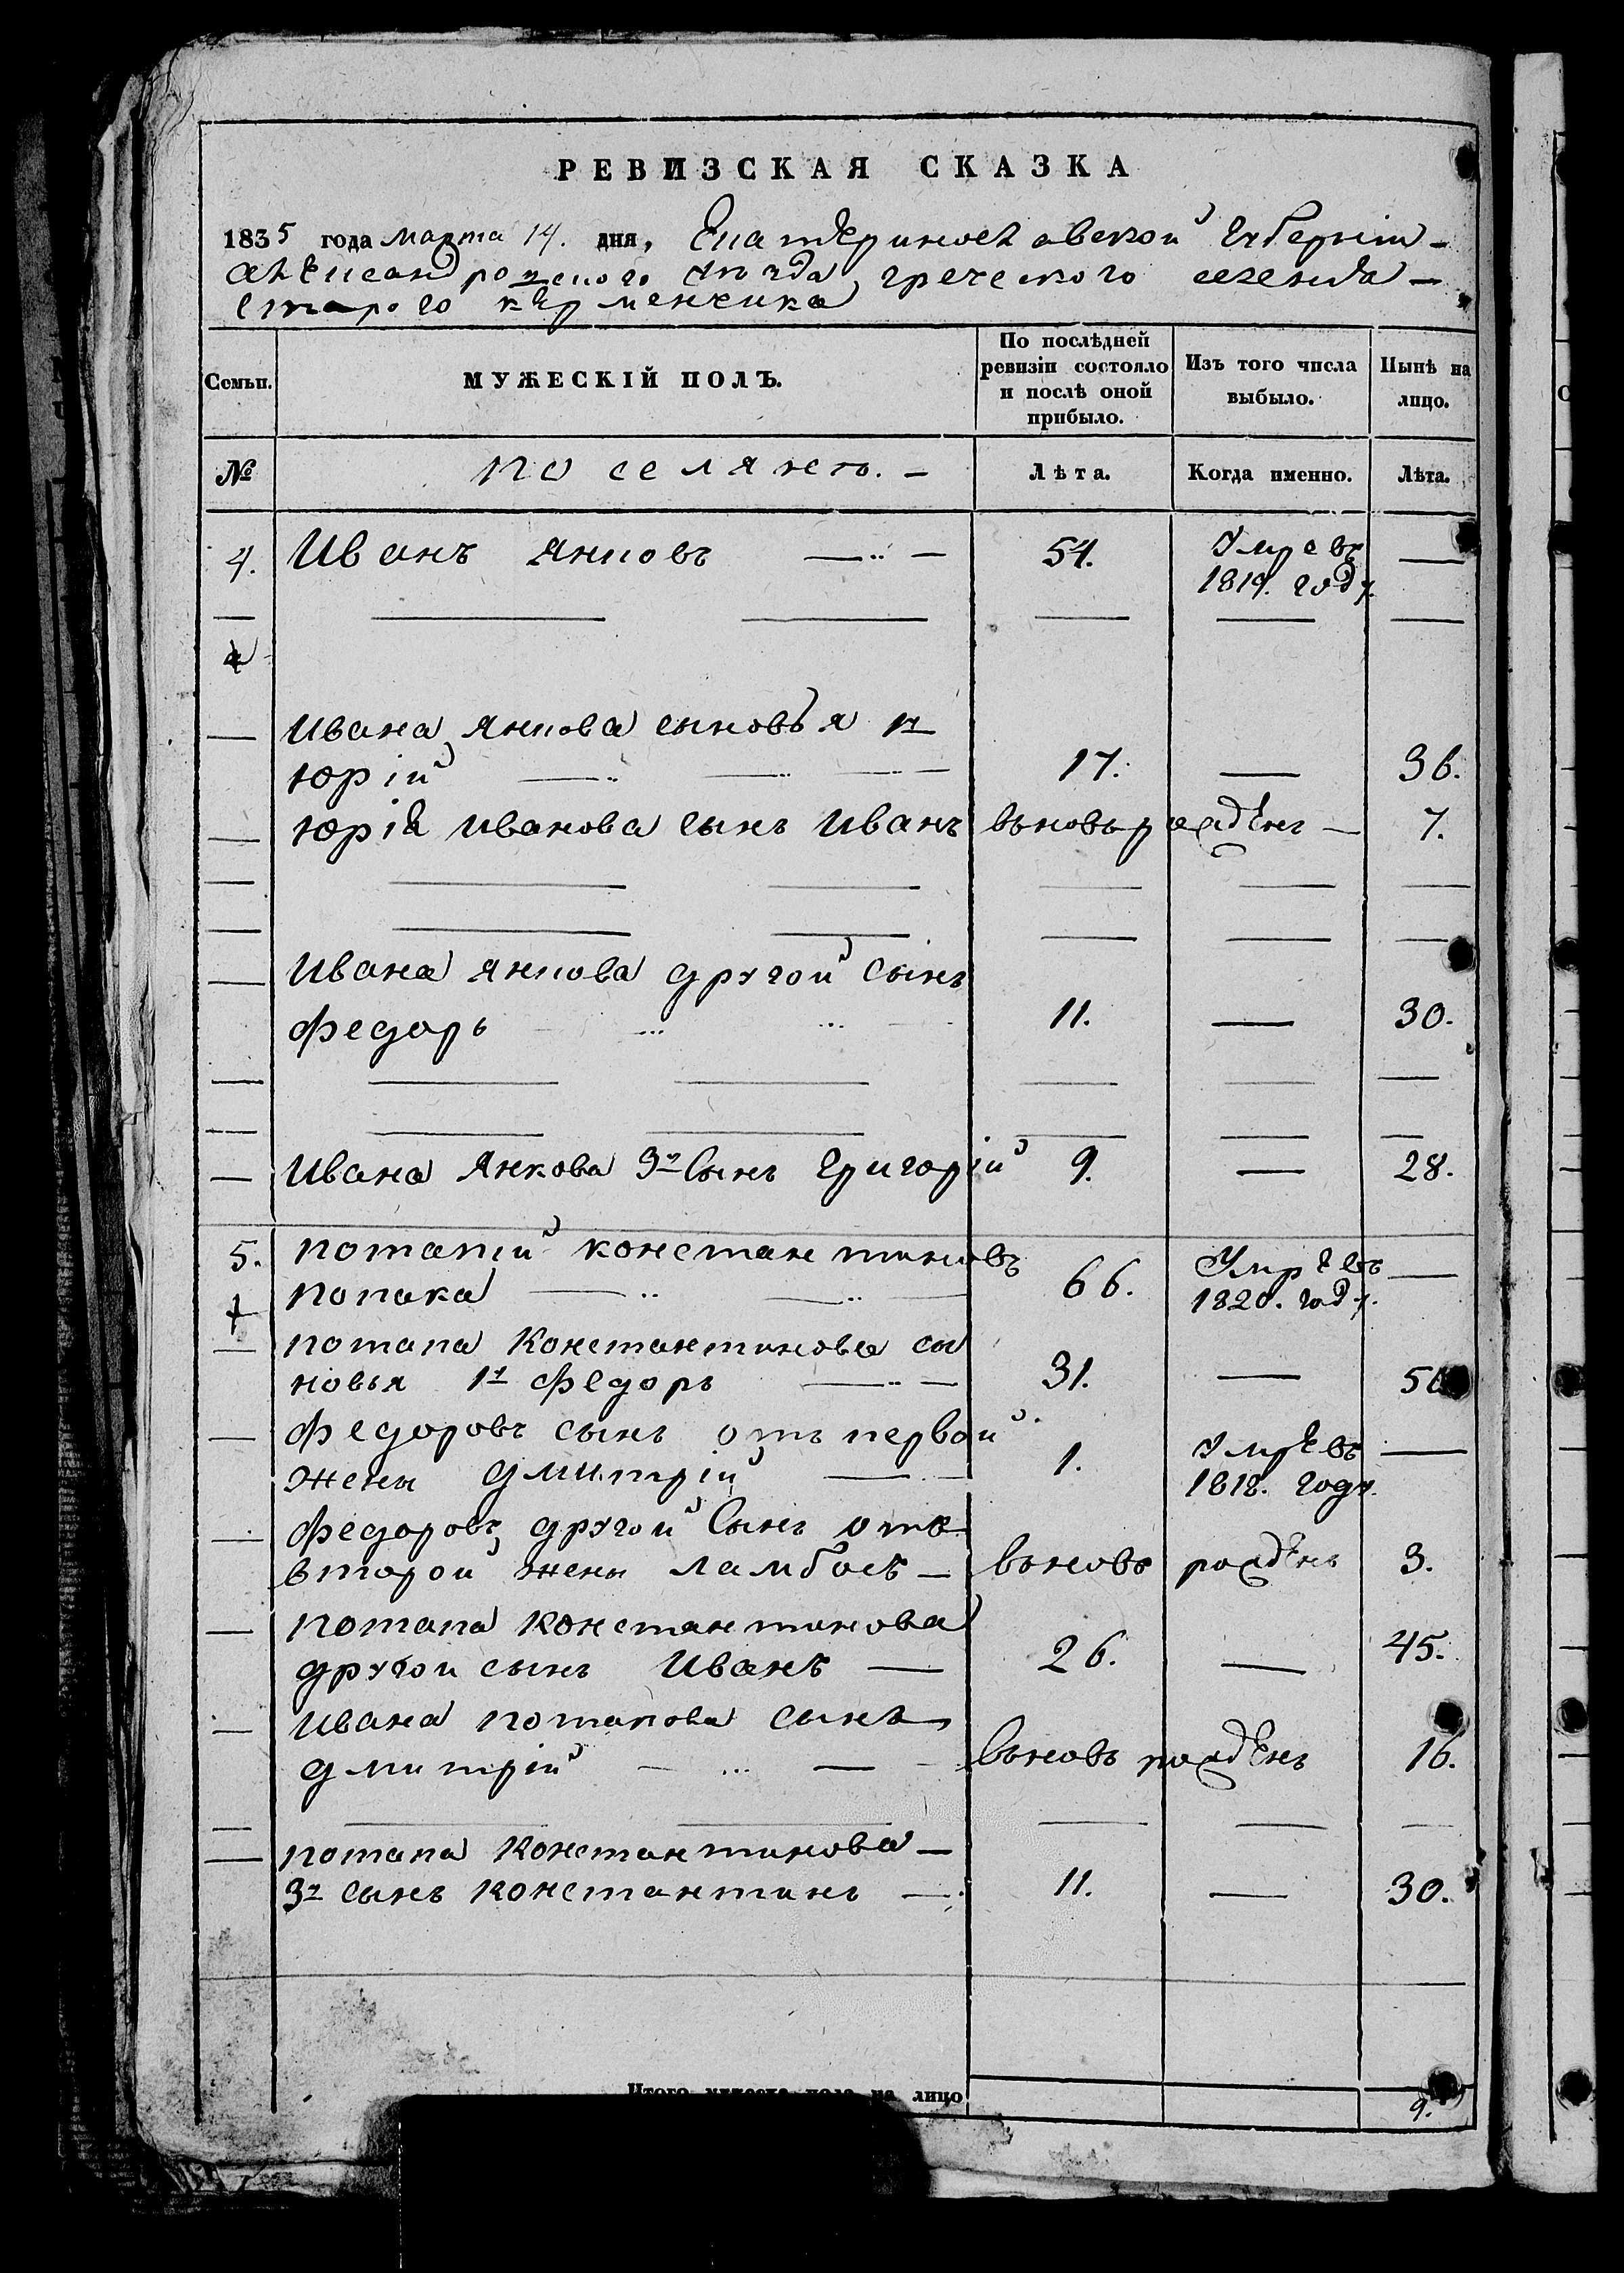 РЕВИЗСКАЯ СКАЗКА
1835 года марта 14. дня, Екатеринославской губернiи
Александровского уезда греческого селения
старого керменчика
Семьи. МУЖЕСКІЙ ПОЛЪ. По послѣдней ревизіи состояло и послѣ оной прибыло. Изъ того числа выбыло. Нынѣ на лицо.
№ поселянъ. Лѣта. Когда именно. Лѣта.
4. Иванъ Янковъ 54. Умре въ 1819. году. —
Ивана Янкова сыновья 1й
юрiй 17. — 36.
юрiя Иванова сынъ Иванъ вьновь рожденъ — 7.
Ивана Янкова другой сынъ
федоръ 11. — 30.
Ивана Янкова 3й сынъ Григорiй 9. — 28.
5. потапiй константиновъ
попака 66. Умре въ 1820. году. —
потапа Константинова сы
новья 1й федоръ 31. — 50
федоровъ сынъ отъ первой
жены дмитрiй 1. Умре въ 1818. году. —
федоровъ другой сынъ отъ
второй жены ламбосъ — вьновь рожденъ 3.
потапа Константинова
другой сынъ Иванъ — 26. — 45.
Ивана потапова сынъ
дмитрiй — вьновь рожденъ 16.
потапа Константинова —
3й сынъ Константинъ — 11. — 30.
Итого мужеска пола на лицо 9.